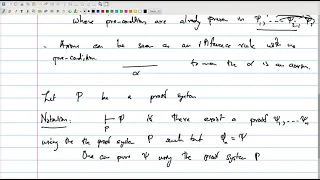 where pre-condition are already proven in Ψ1, ...
. Axiom can be seen as an inference rule with no
pre-condition
α to mean the α is an axiom.
Let P be a proof system
Notation. ⊢P Ψ is there exist a proof Ψ1, ... Ψn
using the the proof system P such that Ψn = Ψ
One can prove Ψ using the proof system P